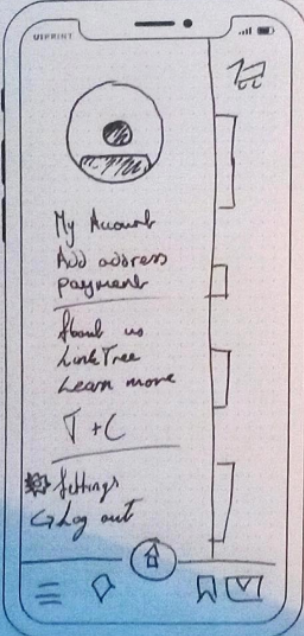 UIPRINT
My Account
Add address
payment
About us
LinkTree
Learn more
T+C
Settings
Log out